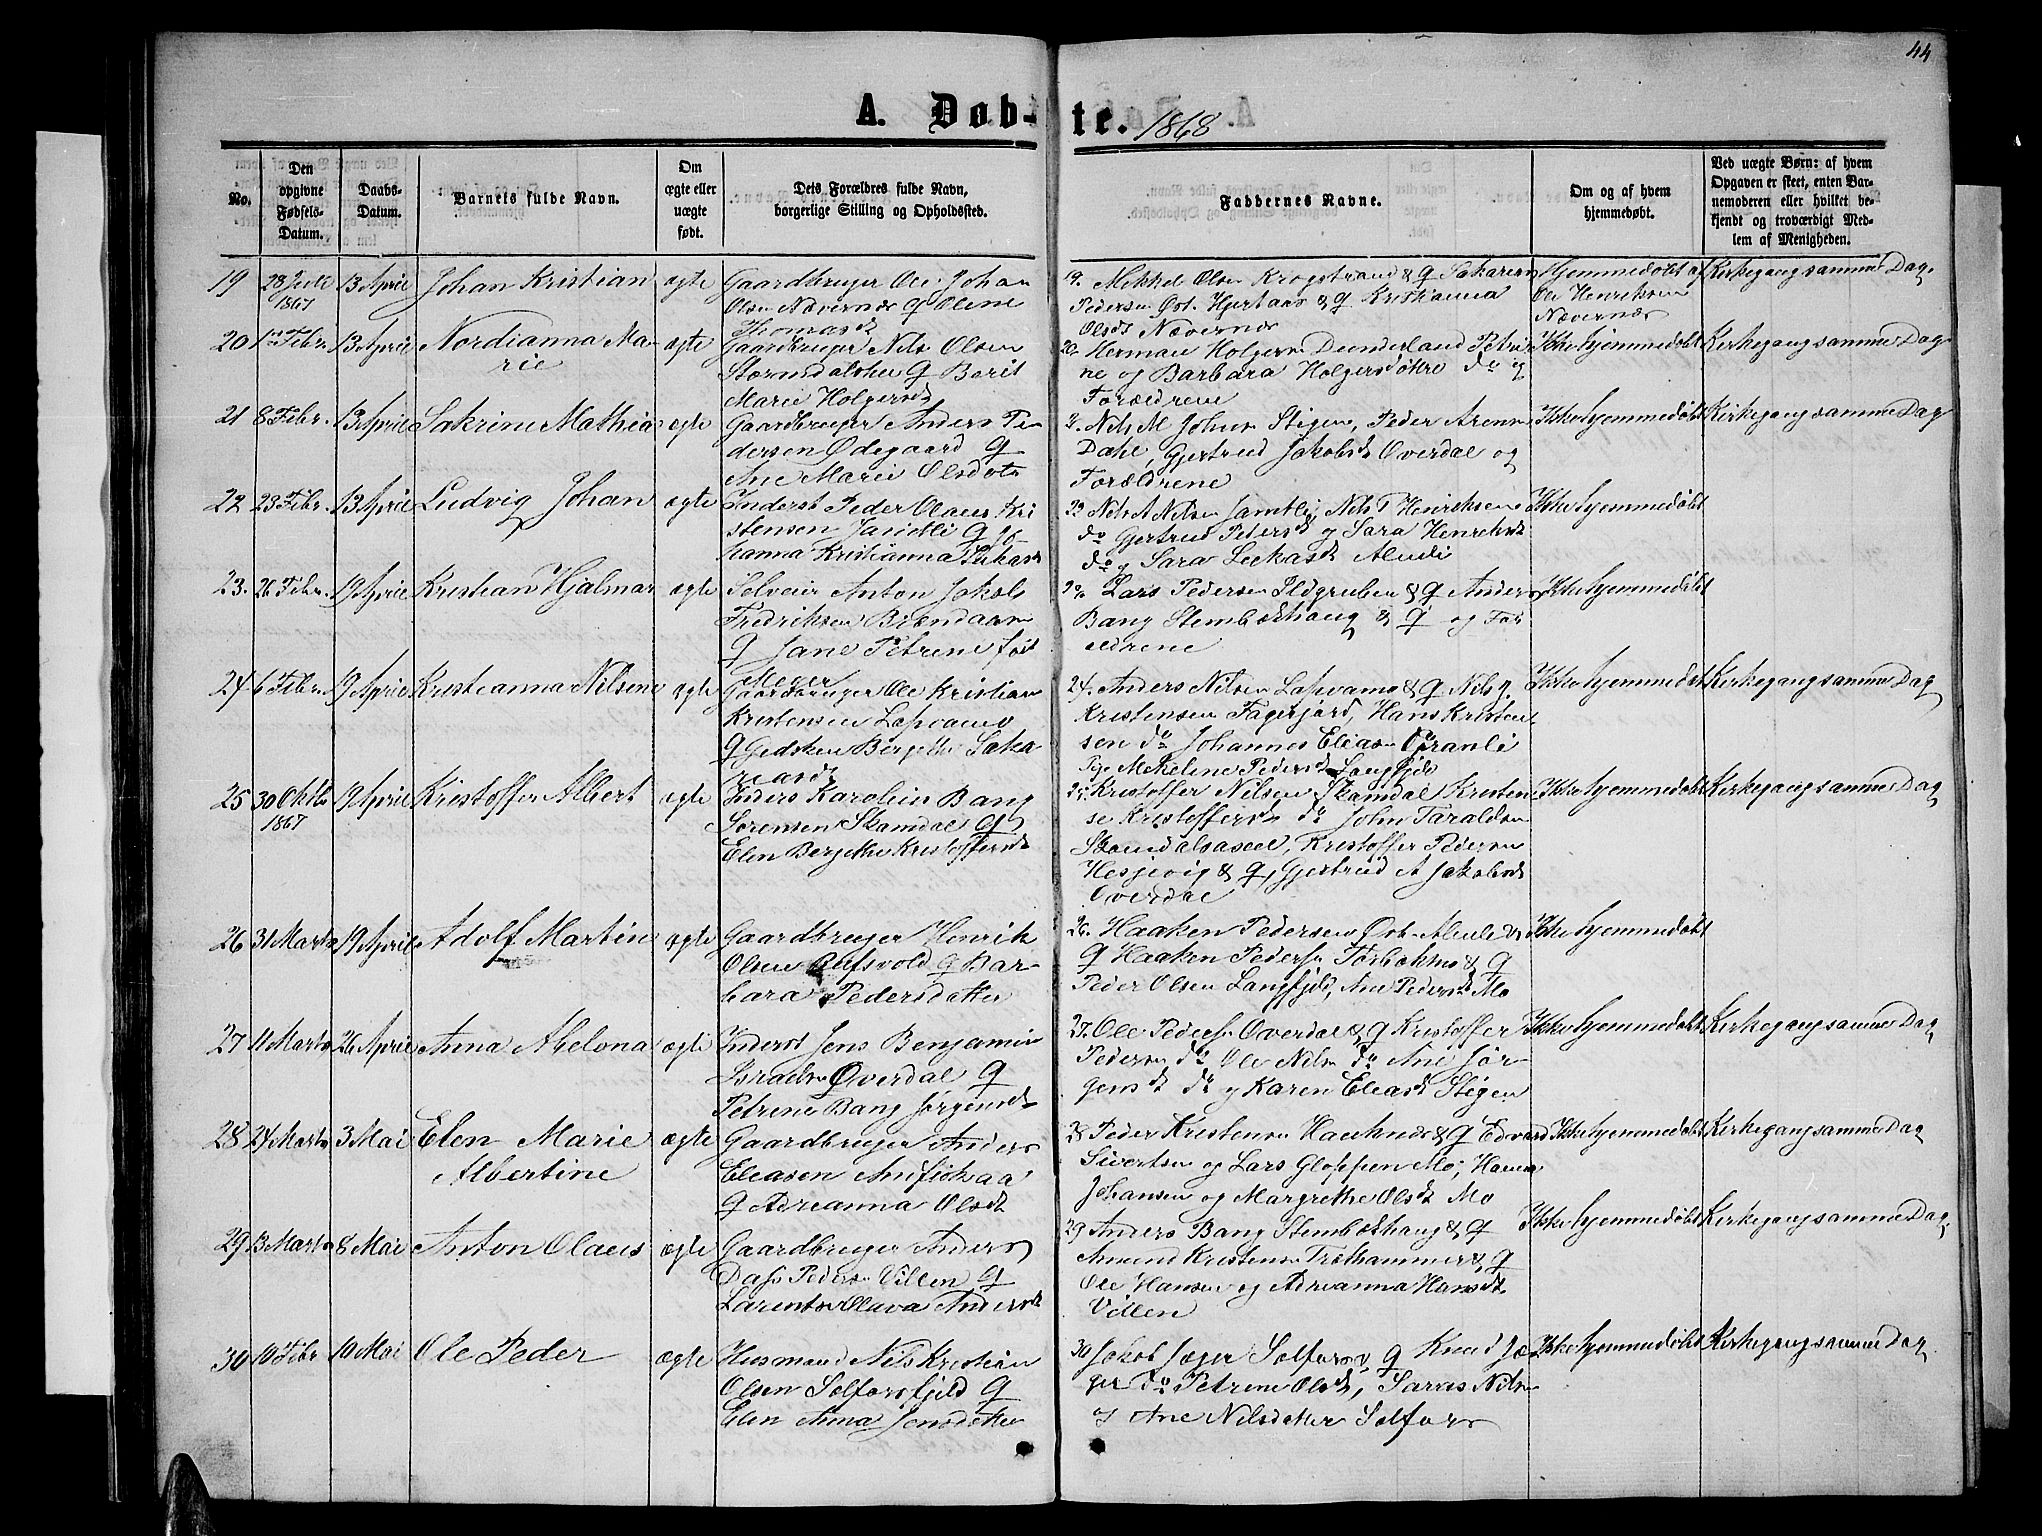 44
A. Døb-te. 1868
No.
Den opgivne Fødsels-Datum.
Daabs-Datum.
Barnets fulde Navn.
Om ægte eller uægte født.
Dets Forældres fulde Navn, borgerlige Stilling og Opholdssted.
Faddernes Navne.
Om og af hvem hjemmedøbt.
Ved uægte Børn: af hvem Opgaven er skeet, enten Barnemoderen eller hvilket bekjendt og troværdigt Medlem af Menigheden.
19 28 Juli 1867 13 April Johan Kristian ægte
Gaardbruger Ole Johan
Olsen Nævernæs & Oline
Thomasdt
19. Mikkel Olsen Krogstrand & & Sakarias
Pedersen Øst. Hjertaas & & Kristianna
Olsdt Nævernæs
Hjemmedøbt af
Ole Henriksen
Nævernæs
Kirkegang samme Dag.
20 Febr. 13 April Nordianna Ma-
rie
ægte
Gaardbruger Nils Olsen
Stormdalshei & Berit
Marie Holgersdt
20. Herman Holgersn Dunderland Petri-
ne og Barbara Holgersdøtre do og
Forældrene
Ikke hjemmedøbt Kirkegang samme Dag
21 8 Febr. 13 April Sakrine Mathea ægte
Gaardbruger Anders Pe-
dersen Ødegaard &
Ane Marie Olsdotr
21. Nils M Johns Stigen, Peder Arnsn
Dahl, Gjertrud Jakobsdt Overdal og
Forældrene
Ikke hjemmedøbt Kirkegang samme Dag
22 23 Febr. 13 April Ludvig Johan ægte
Inderst Peder Olaus Kri
stensen Jamtli & Jo-
hanna Kristianna
22 Nils A Nilsen Jamtli, Nils T Henriksen
do Gjertrud Pedersdt og Sara Henriksdt
do og Sara Leekasdt
Ikke hjemmedøbt
23. 26 Febr. 19 April Kristian Hjalmar ægte
Selveier Anton Jakob
Fredriksen
& Jane Petrine født
Meyer
23 Lars Pedersen Ildgruben & & Anders
Bang Stenbækhaug & & og For
ældrene
Ikke hjemmedøbt
24 6 Febr. 19 April Kristianna Nilsine ægte
Gaardbruger Ole Kristian
Kristensen Lapvamo
& Gedsken Bergitte Saka-
riasdt
24. Anders Nilsen Lapvamo & & Nils
Kristensen Fagerjord, Hans Kristen
sen do Johannes Eliasn
Pige Mekeline Pedersdt Langfjeld
Ikke hjemmedøbt Kirkegang samme Dag
25 30 Oktb 1867 19 April Kristoffer Albert ægte
Inders Karolin Bang
Sørensen Skamdal &
Elen Bergitte Kristoffersdt
25. Kristoffer Nilsen Skamdal Kristen-
se Kristoffersn do John Taraldsn
Skamdalsaasel, Kristoffer Pedersn
Hesjevig & &, Gjertrud A Jakobsdt
Overdal
Ikke hjemmedøbt Kirkegang samme Dag
26 31 Marts 19 April Adolf Martin ægte
Gaardbruger Henrik
Olsen Rufsvold & Bar-
bara Pedersdatter
26. Haaken Pedersen
& Haaken Peders & &
Peder Olsen Langfjeld, Ane Pedersdt Mo
Ikke hjemmedøbt
27 11 Marts 26 April Anna Abelona ægte
Inderst Jens Benjamin
Israelsn Overdal &
Petrine Bang Jørgensdt
27. Ole Peders Overdal & & Kristoffer
Pedersn do Ole Nilsn do Ane Jør-
gensdt do og Karen Eleasdt Stigen
Ikke hjemmedøbt Kirkegang samme Dag
28 24 Marts 3 Mai Elen Marie
Albertine
ægte
Gaardbruger Anders
Eleasen
& Adrianna Olsdt
28 Peder Kristensn & & Edvard
Sivertsen og Lars Gloppen Mo, Hanna
Johansen og Margrethe Olsdt Mo
Ikke hjemmedøbt Kirkegang samme Dag
29 13 Marts 8 Mai Anton Olaus ægte
Gaardbruger Anders
Dass Pedersn Villen &
Larentse Olava Andersdt
29 Anders Bang Stenbækhaug & &
Amund Kristensn Træthammer & &
Ole Hansen og Adrianna Hansdt
Villen
Ikke hjemmedøbt Kirkegang samme Dag
30 10 Febr 10 Mai Ole Peder ægte
Husmand Nils Kristian
Olsen Solforsfjeld &
Elen Anna Jensdatter
30 Jakob Jæger Solfors & Knud Jæ
ger do Petrine Olsdt, Saras Nilsn
og Ane Nilsdatter Solfors
Ikke hjemmedøbt Kirkegang samme Dag